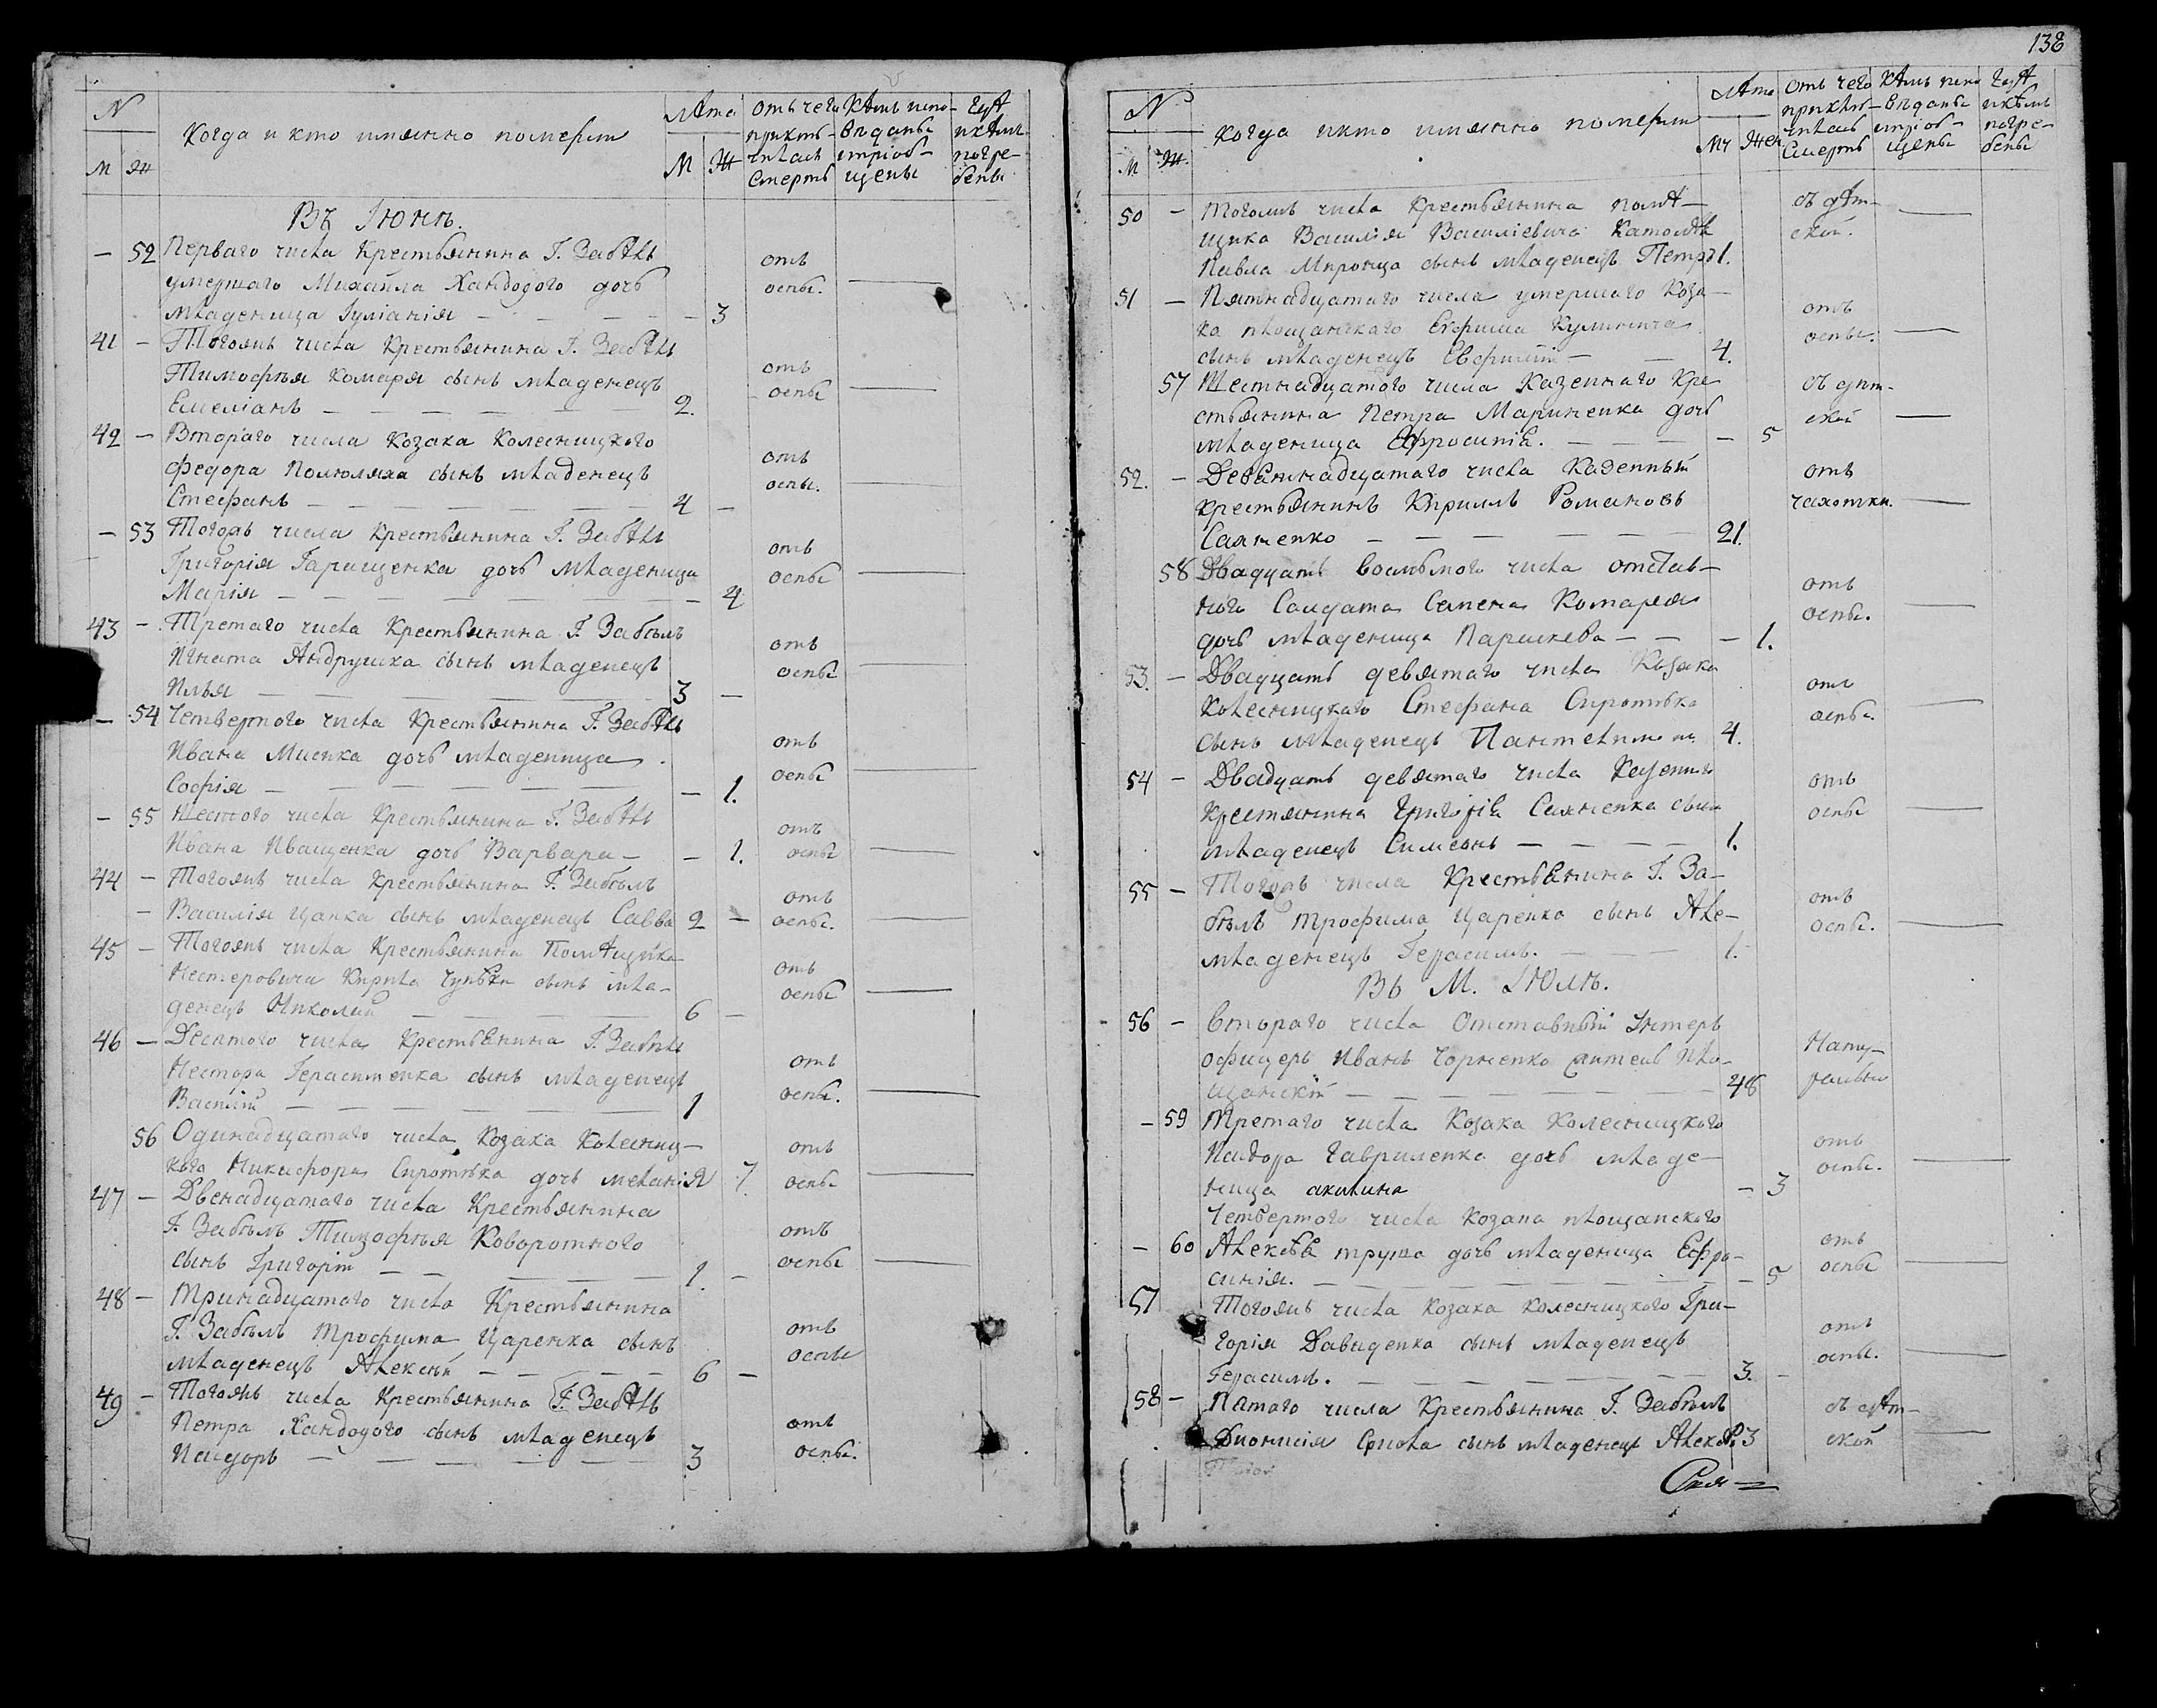 N
М Ж
Когда и кто имянно померъ
Лѣта
М Ж
отъ чего приклю- чилась смерть
кѣмъ испо- вѣданы и пріоб- щены
гдѣ и кѣмъ погре- бены
Въ Іюнѣ.
— 52 Перваго числа Крестьянина Г. Забѣлъ
умершаго Михайла Хандодого дочь
младеница Іуліанія — 3
отъ оспы.
41 — Тогожъ числа Крестьянина Г. Забѣлъ
Тимофѣя Комаря сынъ младенецъ
Емеліанъ — 2.
отъ оспы
42 — Втораго числа Козака Колесницкого
Федора Полюляха сынъ младенецъ
Стефанъ — 4 —
отъ оспы.
— 53 Тогожъ числа Крестьянина Г. Забѣлъ
Григорія Гарищенка дочь младеница
Марія — 4
отъ оспы
43 — Третаго числа Крестьянина Г. Забѣлъ
Игната Андрушка сынъ младенецъ
Илья — 3 —
отъ оспы
— 54 Четвертого числа Крестьянина Г. Забѣлъ
Ивана Миська дочь младеница
Софія — 1.
отъ оспы
— 55 Шестого числа Крестьянина Г. Забѣлъ
Ивана Иващенка дочь Варвара — 1.
отъ оспы
44 — Тогожъ числа Крестьянина Г. Забѣлъ
— Василія Цапка сынъ младенецъ Савва 2 —
отъ оспы.
45 — Тогожъ числа Крестьянина Помѣщика
Нестеровича Кирила сынъ мла-
денецъ Николай — 6 —
отъ оспы
46 — Десятого числа Крестьянина Г. Забѣлъ
Нестора Герасименка сынъ младенецъ
Василій — 1
отъ оспы.
56 Одинадцатаго числа Козака Колесниц-
кого Никифора Сиротька дочь Меланія 7.
отъ оспы
47 — Двенадцатаго числа Крестьянина
Г. Забѣлъ Тимофѣя Коворотного
сынъ Григорій — 1. —
отъ оспы
48 — Тринадцатаго числа Крестьянина
Г. Забѣлъ Трофима Царенка сынъ
младенецъ Алексѣй — 6 —
отъ оспы
49 — Тогожъ числа Крестьянина Г. Забѣлъ
Петра Хандодого сынъ младенецъ
Исидоръ — 3
отъ оспы.
138
N
М Ж.
Когда и кто имянно померъ
Лѣта
Му Жен
Отъ чего приклю- чилась Смерть
Кѣмъ испо- вѣданы и пріоб- щены
Гдѣ и кѣмъ погре- бены
50 — Тогожъ числа Крестьянина помѣ-
щика Василія Василіевича
Павла Миронца сынъ младенецъ Петръ 1.
съ дѣт- ской.
51 — Пятнадцатаго числа умершаго Коза-
ка площанского Ефима Кулинича
сынъ младенецъ Евфимій — 4.
отъ оспы.
57 Шестнадцатого числа Казенного Кре
стьянина Петра Мариненка дочь
младеница Ефросинія. — 5
съ дѣт- ской
52. — Девятнадцатаго числа Казенный
крестьянинъ Кириллъ Романовъ
Саяненко — 21.
отъ чахотки.
58 Двадцать восьмого числа отстав-
ного Салдата Семена Комаря
дочь младеница Параскева — 1.
отъ оспы.
53. — Двадцать девятаго числа Козака
Колесницкаго Стефана Сиротька
сынъ младенецъ Пантелимонъ 4.
отъ оспы.
54 — Двадцать девятаго числа Казенного
Крестянина Григорія Саяненка сынъ
младенецъ Симеонъ — 1.
отъ оспы
55 — Тогожъ числа Крестьянина Г. За-
бѣлъ Трофима Царенка сынъ Але-
младенецъ Герасимъ. — 1.
отъ оспы.
Въ М. Іюлѣ.
56 — Втораго числа Отставный Унтеръ
офицеръ Иванъ Чорненко жителъ Пло-
щанскій — 48
Нату- ральны
— 59 Третаго числа Козака Колесницкого
Исидора Гавриленка дочь младе-
ница акилина — 3
отъ оспы.
Четвертого числа Козака площанского
— 60 Алексѣя труша дочь младеница Ефро-
синія. — 5
отъ оспы
57 Тогожъ числа Козака Колесницкого Гри-
горія Давиденка сынъ младенецъ
Герасимъ. — 3. —
отъ оспы.
58 — Пятаго числа Крестьянина Г. Забѣлъ
Дионисія сынъ младенецъ Алексѣй 3
съ дѣт- ской